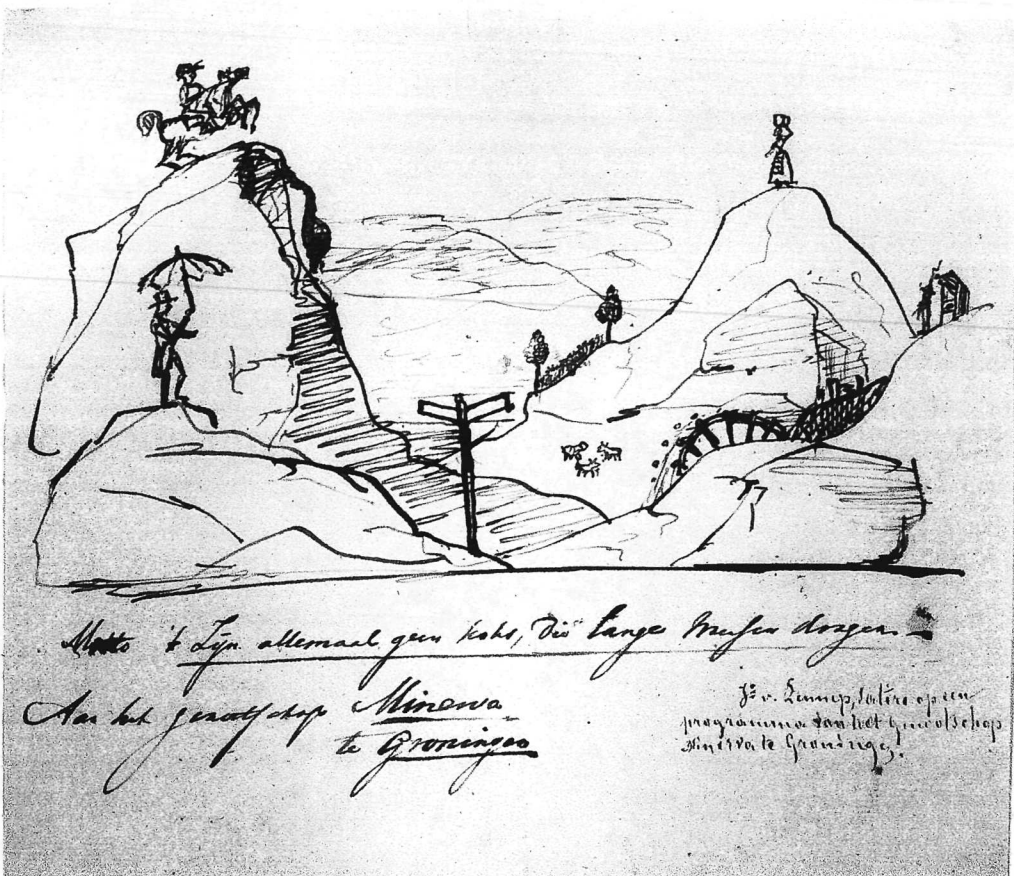 Motto 't Zijn allemaal geen koks, die lange messen dragen.—
Aan het genootschap Minerva
te Groningen
Js. v. Lennep, satire op een
programma van het Genootschap
Minerva te Groningen.